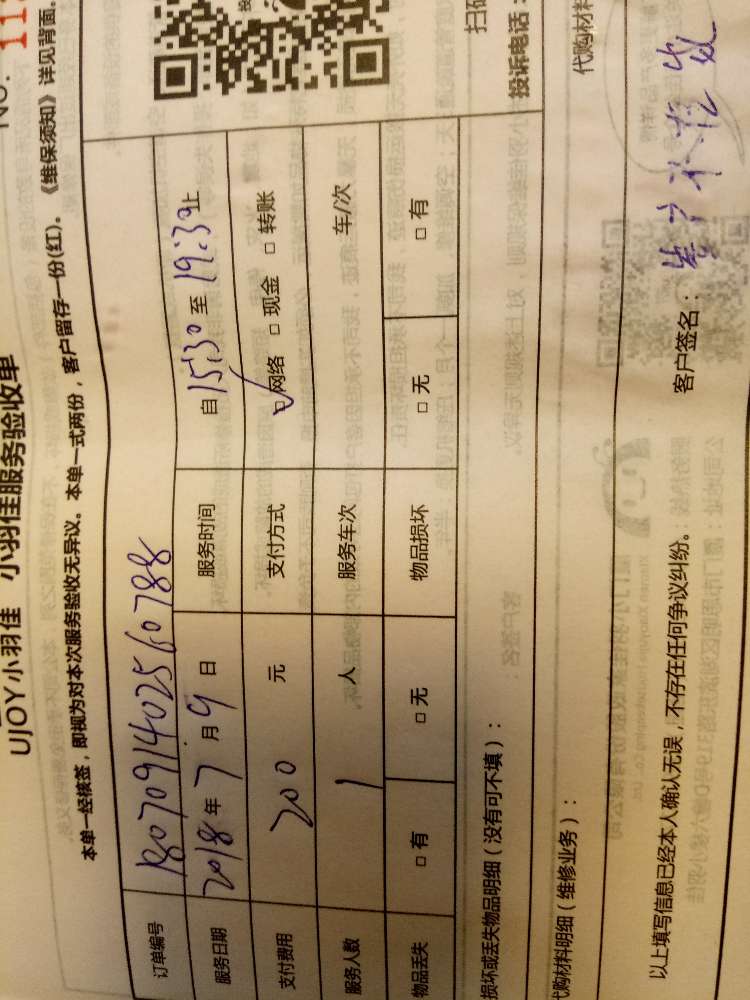 No. 11
UJOY小羽佳 小羽佳服务验收单
本单一经核签，即视为对本次服务验收无异议。本单一式两份，客户留存一份(红)。《维保须知》详见背面。
订单编号 1807091402560788
服务日期 2018年7月9日 服务时间 自15:30至19:30止
支付费用 200元 支付方式 ☑网络 □现金 □转账
服务人数 1人 服务车次 车/次
物品丢失 □有 □无 物品损坏 □无 □有
损坏或丢失物品明细（没有可不填）：
扫码
投诉电话：
代购材料明细（维修业务）：
代购材料
以上填写信息已经本人确认无误，不存在任何争议纠纷。
客户签名：客户不在